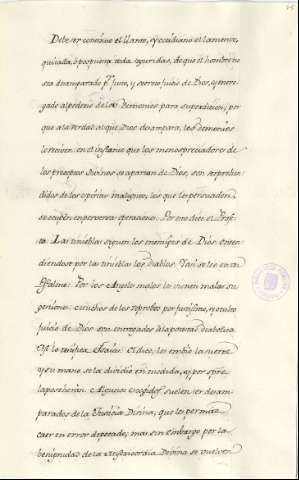 Debe ser continuo el llanto, y cotidiano el lamento,
quitada, ó pospuesta toda seguridad, de que el hombre no
sea desamparado pr. justo, y secreto juicio de Dios, y entre
gado al poder de los Demonios para su perdicion; por
que a la verdad al que Dios desampara, los demonios
lo reciben: en el instante que los menospreciadores de
los preceptos Divinos se apartan de Dios, son
de los espiritus malignos, los que les persuaden,
se ocupen en perversas operaciones. Por eso dice el Profe
ta: Las tinieblas siguen los enemigos de Dios: enten
diendose por las tinieblas los diablos. Tambien se lee en un
Psalmo: Por los Angeles malos les vienen malas su
gestiones: muchos de los reprobos por justisimo, y oculto
juicio de Dios son entregados a la potestad diabolica
Asi lo testifica Isaias: El dice, les embió la suerte
y su mano se la dividió en medida, y por siempre
la poseheran. Algunos escogidos suelen ser desam
parados de la Justicia Divina, que les permite
caer en error de pecado; mas sin embargo por la
benignidad de la misericordia Divina se vuelven